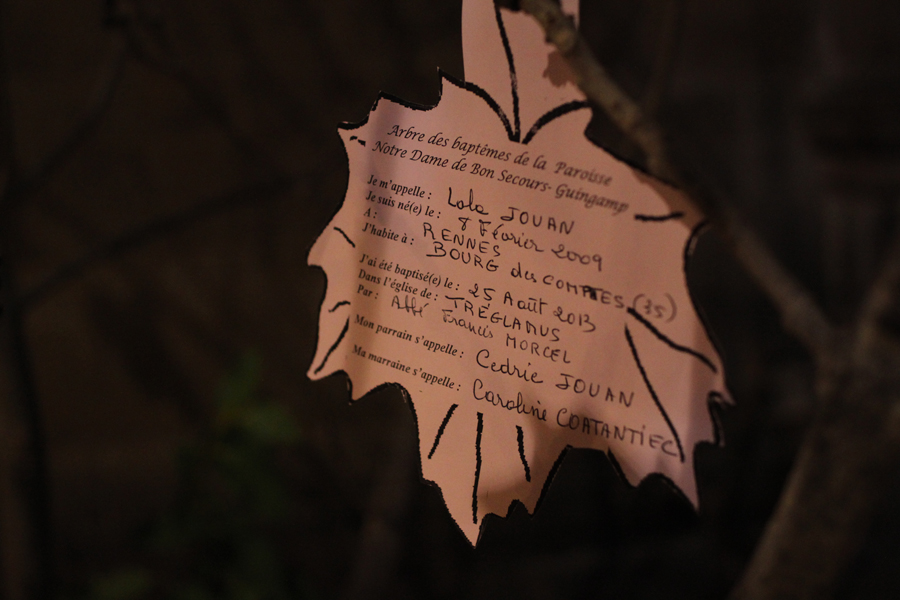 Arbre des baptêmes de la Paroisse
Notre Dame de Bon Secours- Guingamp
Je m'appelle : Lola JOUAN
Je suis né(e) le : 8 Février 2009
A : RENNES
J'habite à : BOURG des COMPTES (35)
J'ai été baptisé(e) le : 25 Août 2013
Dans l'église de : TRÉGLAMUS
Par : Abbé Francis MORCEL
Mon parrain s'appelle : Cedric JOUAN
Ma marraine s'appelle : Caroline COATANTIEC